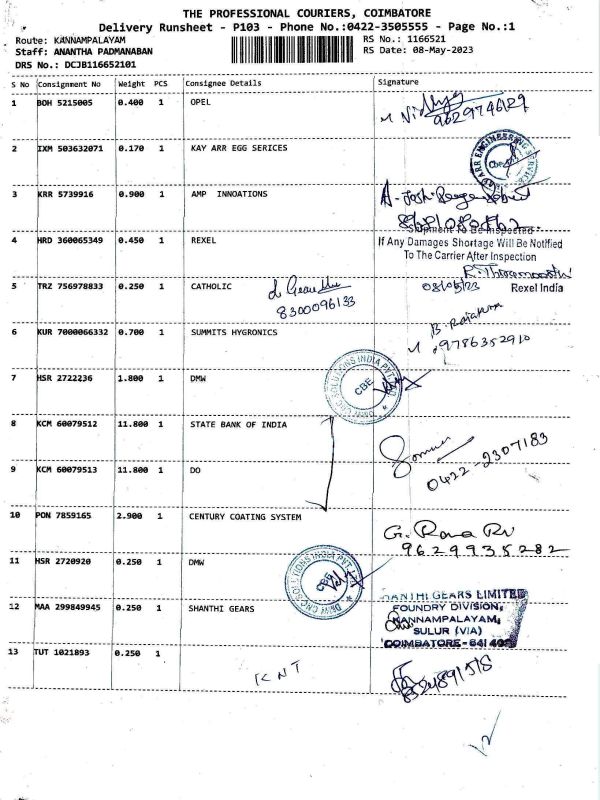 THE PROFESSIONAL COURIERS, COIMBATORE
Delivery Runsheet - P103 - Phone No.:0422-3505555 - Page No.:1
Route: KANNAMPALAYAM
RS No.: 1166521
Staff: ANANTHA PADMANABAN
RS Date: 08-May-2023
DRS No.: DCJB116652101
S No Consignment No Weight PCS Consignee Details Signature
1 BOH 5215005 0.400 1 OPEL
9629746129
2 IXM 503632071 0.170 1 KAY ARR EGG SERICES
CBE
3 KRR 5739916 0.900 1 AMP INNOATIONS
4 HRD 360065349 0.450 1 REXEL
Shipment To Be Inspected
If Any Damages Shortage Will Be Notified
To The Carrier After Inspection
5 TRZ 756978833 0.250 1 CATHOLIC
8300096133
03/05/23 Rexel India
6 KUR 7000066332 0.700 1 SUMMITS HYGRONICS
9786352910
7 HSR 2722236 1.800 1 DMW
DMW CNC SOLUTIONS INDIA PVT LTD
CBE
8 KCM 60079512 11.800 1 STATE BANK OF INDIA
0422-2307183
9 KCM 60079513 11.800 1 DO
10 PON 7859165 2.900 1 CENTURY COATING SYSTEM
9629935282
11 HSR 2720920 0.250 1 DMW
DMW CNC SOLUTIONS INDIA PVT
12 MAA 299849945 0.250 1 SHANTHI GEARS
SHANTHI GEARS LIMITED
FOUNDRY DIVISION,
KANNAMPALAYAM,
SULUR (VIA)
COIMBATORE - 641 402
13 TUT 1021893 0.250 1
KNT